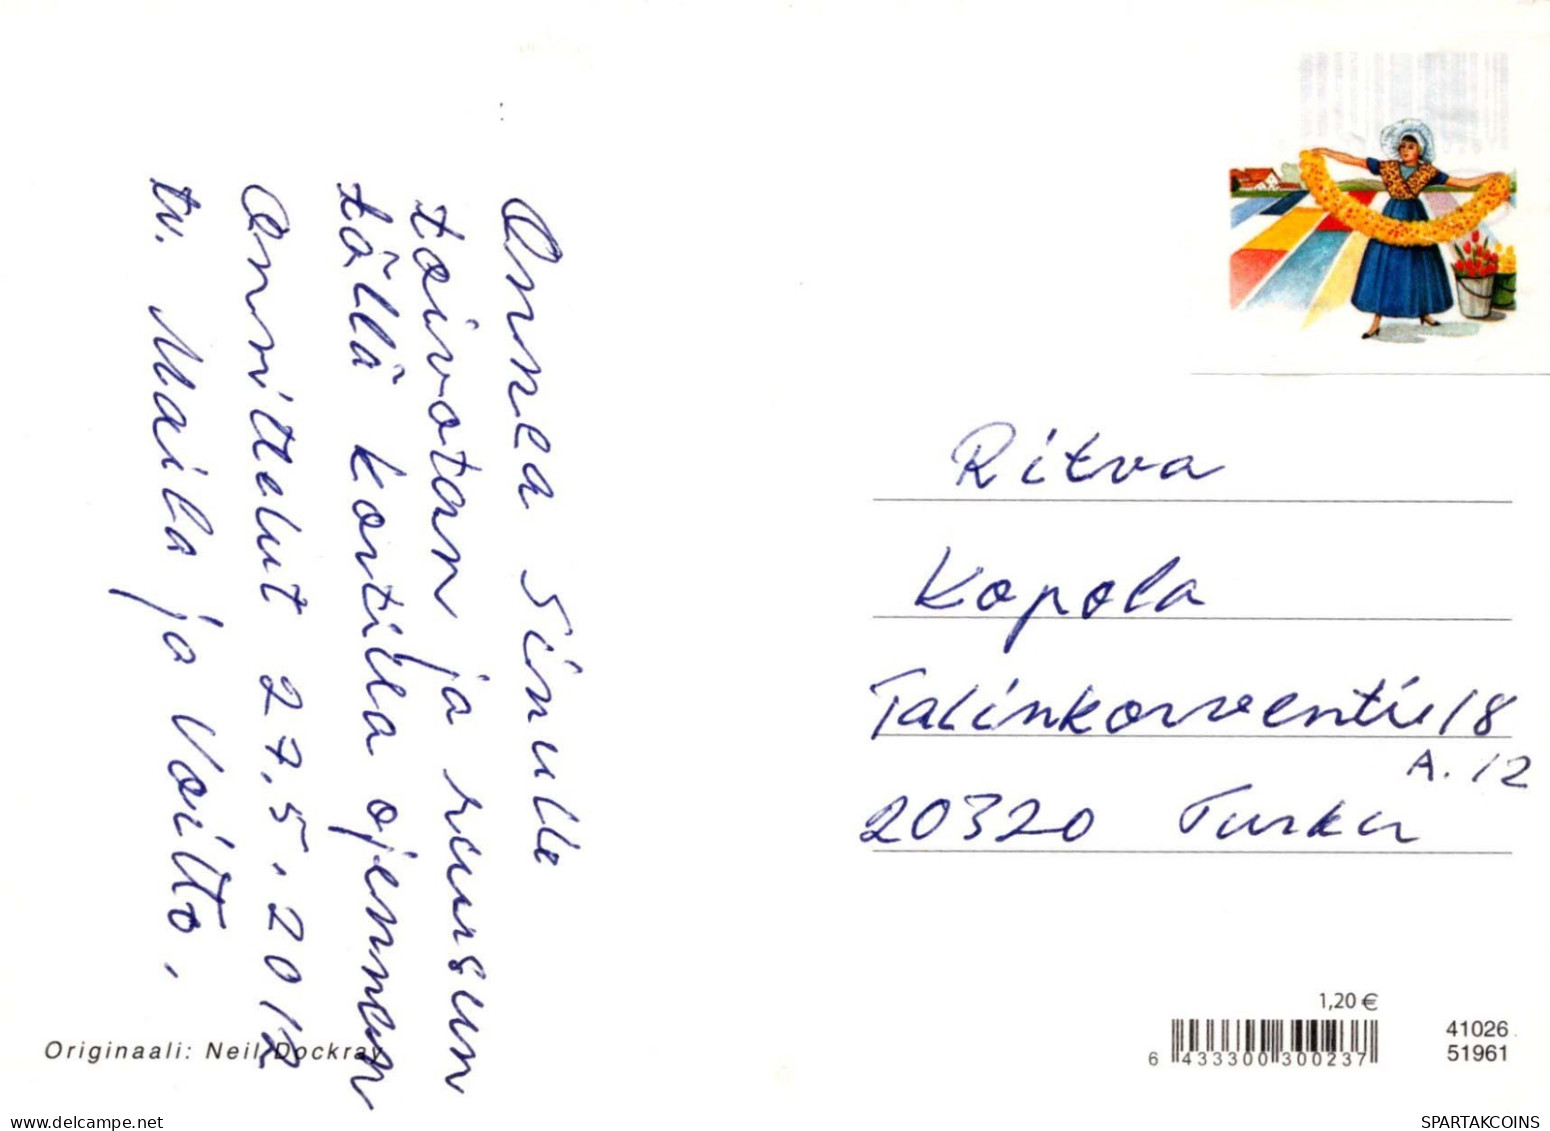 Onnea Sinulle
toivotan ja ruusun
tällä kortilla ojennan
Onnittelut 27.5.2012
tv. Maila ja Voitto.
Originaali: Neil Dockray
Ritva
Kopola
Talinkorventie 18
A. 12
20320 Turku
1,20 €
6 433300 300237
41026
51961
SPARTAKCOINS